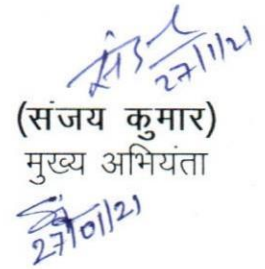 27/1/21
(संजय कुमार)
मुख्य अभियंता
27/01/21